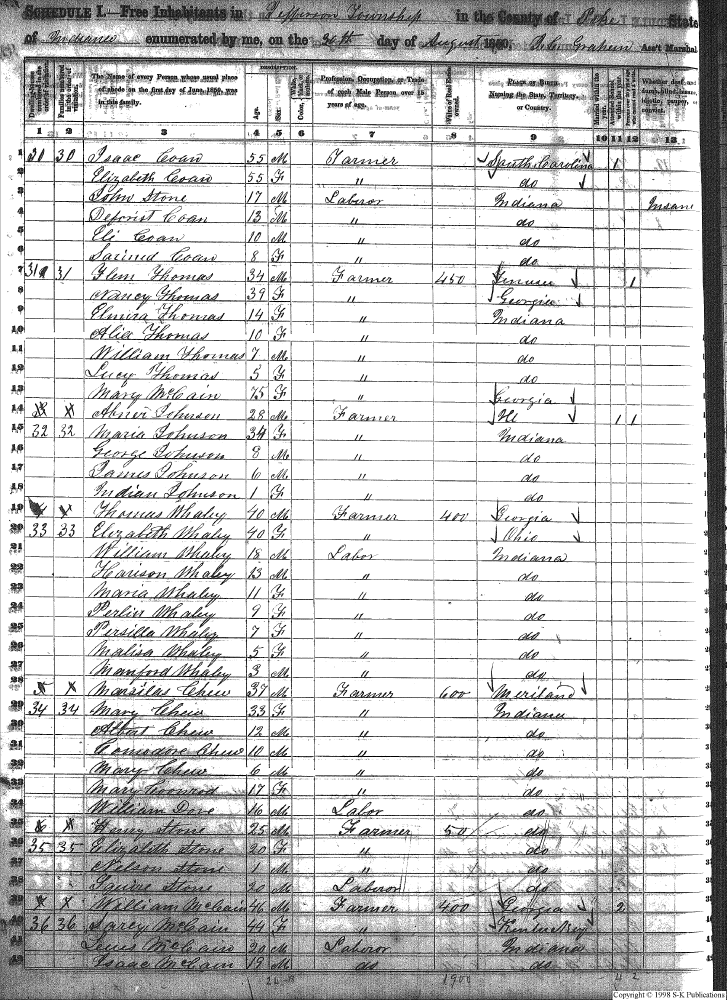 SCHEDULE I.—Free Inhabitants in Jefferson Township in the County of Pike State
of Indiana enumerated by me, on the 20th day of August 1850. Graham Ass't Marshal
The Name of every Person whose usual place of abode on the first day of June, 1850, was in this family.
DESCRIPTION.
Age.
Sex.
Profession, Occupation, or Trade of each Male Person, over 15 years of age.
Value of Real Estate owned.
PLACE OF BIRTH. Naming the State, Territory, or Country.
1 2 3 4 5 6 7 8 9 10 11 12 13
1 30 30 Isaac Coan 55 M Farmer South Carolina 1
2 Elizabeth Coan 55 F " do
3 John Stone 17 M Laberor Indiana Insane
4 Deforist Coan 13 M " do
5 Eli Coan 10 M " do
6 Coan 8 F " do
7 31 31 Thomas 34 M Farmer 450 1
8 Nancy Thomas 39 F " Georgia
9 Elmira Thomas 14 F " Indiana
10 Alia Thomas 10 F " do
11 William Thomas 7 M " do
12 Lucy Thomas 5 F " do
13 Mary McCain 75 F " Georgia
14 X X Abner Johnson 28 M Farmer 1 1
15 32 32 Maria Johnson 34 F Indiana
16 George Johnson 8 M " do
17 James Johnson 6 M " do
18 Indian Johnson 1 F " do
19 X X Thomas Whaley 40 M Farmer 400 Georgia
20 33 33 Elizabeth Whaley 40 F " Ohio
21 William Whaley 18 M Labor Indiana
22 Harison Whaley 13 M " do
23 Maria Whaley 11 F " do
24 Perlin Whaley 9 F " do
25 Persilla Whaley 7 F " do
26 Malisa Whaley 5 F " do
27 Manford Whaley 3 M " do
28 X X Marsilas Chew 37 M Farmer 600 Meriland
29 34 34 Mary Chew 33 F " Indiana
30 Albert Chew 12 M " do
31 Comodore Chew 10 M " do
32 Mary Chew 6 M " do
33 Mary Coonrod 17 F " do
34 William Dove 16 M Labor do
35 X X Henry Stone 25 M Farmer 50 do
36 35 35 Elizabeth Stone 20 F " do
37 Nelson Stone 1 M " do
38 Squire Stone 20 M Laberor do
39 X X William McCain 46 M Farmer 400 Georgia 2
40 36 36 Sarey McCain 44 F " Kentuckey
41 Lewis McCain 20 M Laberor Indiana
42 Isaac McCain 19 M do do
1900 4 2
Copyright © 1998 S-K Publications